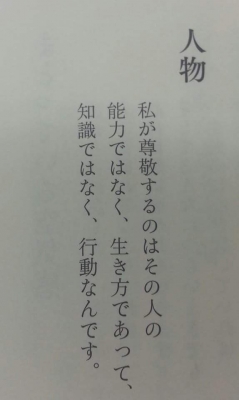 人物
私が尊敬するのはその人の
能力ではなく、生き方であって、
知識ではなく、行動なんです。